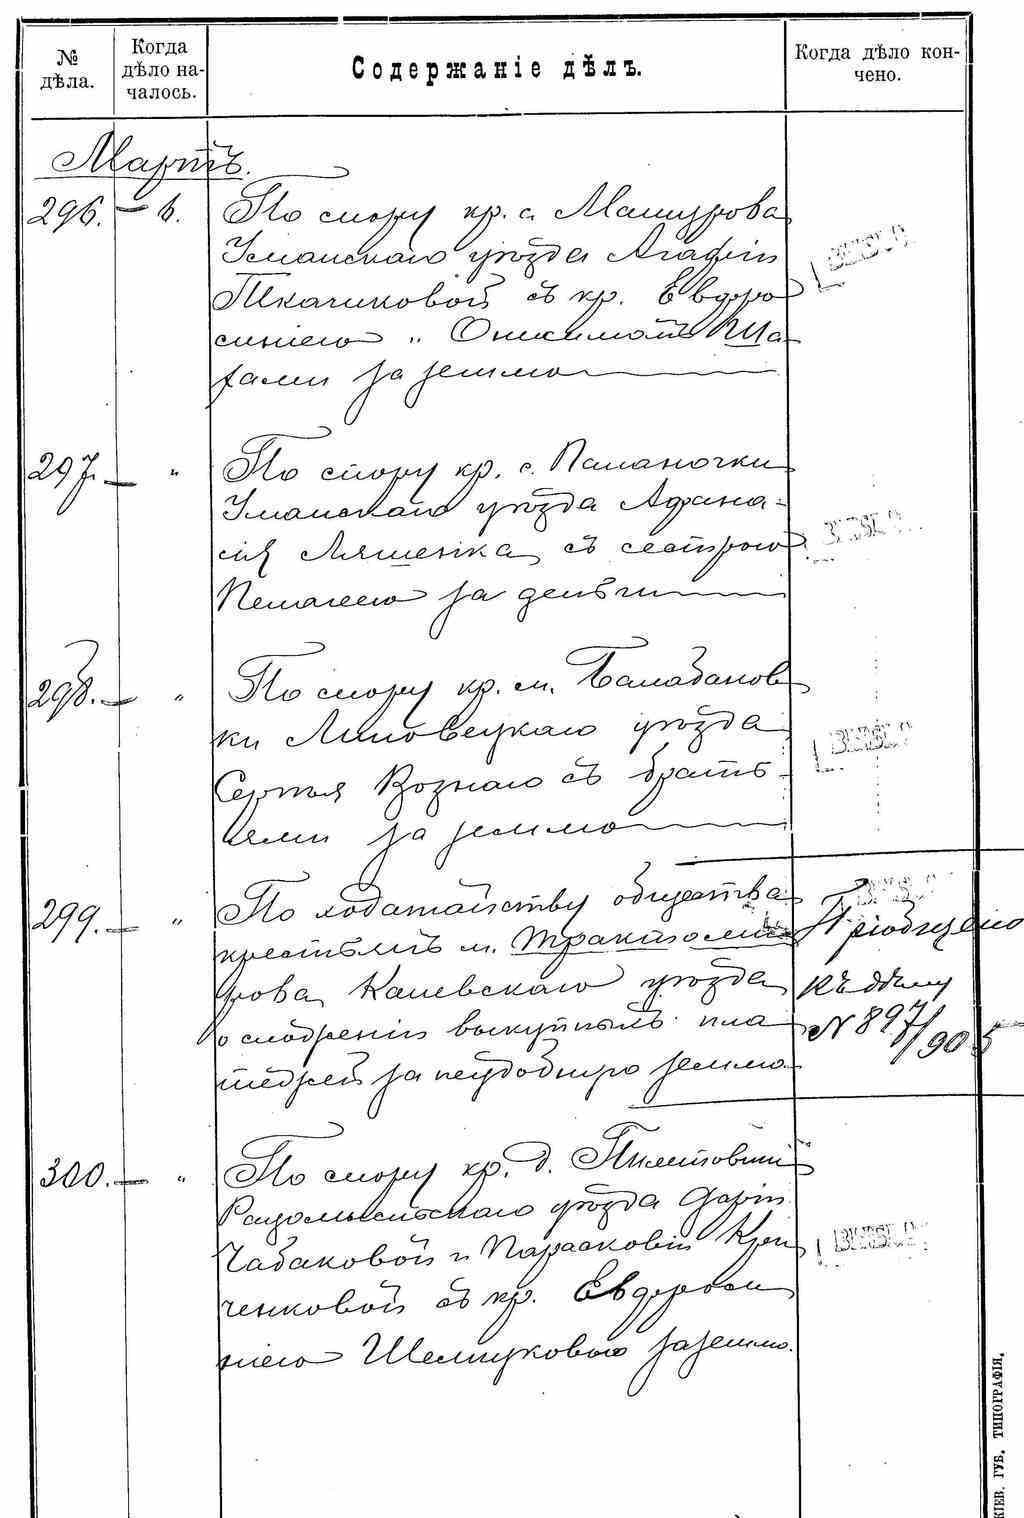 № дѣла.
Когда дѣло на-
чалось.
Содержаніе дѣлъ.
Когда дѣло кон-
чено.
Мартъ.
296. — 6.
По спору кр. с. Машурова
Уманскаго уѣзда Агафіи
Ткачиковой съ кр. Евдоро
синіею и Онисимомъ Ша
рами за землю
297. — "
По спору кр. с. Паланочки
Уманскаго уѣзда Афана-
сія Ляшенка съ сестрою
Пелагеею за деньги
298. — "
По спору кр. м. Балабанов
ки Липовецкаго уѣзда
Сергѣя Вознаго съ брать-
ями за землю
299. — "
По ходатайству общества
крестьянъ м. Трактоми
рова Каневскаго уѣзда
о сложеніи выкупныхъ пла
тежей за неудобную землю
Пріобщено
къ дѣлу
N 897/905
300. — "
По спору кр. д.
Радомысльскаго уѣзда Даріи
Чабаковой и Парасковіи
ченковой съ кр. Евдороси
ніею Шелшуковою за землю.
КІЕВ. ГУБ. ТИПОГРАФІЯ.